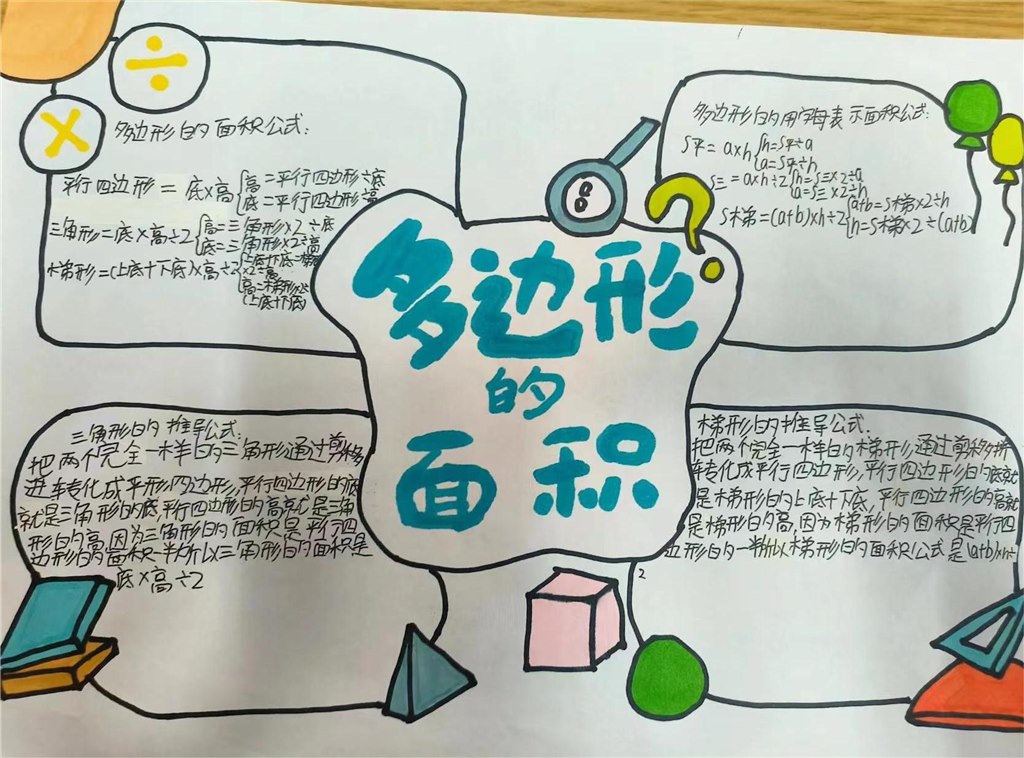 多边形的面积公式:
平行四边形=底×高{高=平行四边形÷底
底=平行四边形÷高
三角形=底×高÷2{高=三角形×2÷底
底=三角形×2÷高
梯形=(上底+下底)×高÷2{上底+下底=梯形
×2÷高
高=梯形×2
(上底+下底)
多边形的用字母表示面积公式:
S平=a×h{h=S平÷a
a=S平÷h
S三=a×h÷2{h=S三×2÷a
a=S三×2÷h
S梯=(a+b)×h÷2{a+b=S梯×2÷h
h=S梯×2÷(a+b)
多边形
的
面积
三角形的推导公式:
把两个完全一样的三角形通过剪移
进车转化成平形四边形,平行四边形的底
就是三角形的底平行四边形的高就是三角
形的高,因为三角形的面积是平行四
边形的面积一半所以三角形的面积是
底×高÷2
梯形的推导公式.
把两个完全一样的梯形,通过剪移拼
车转化成平行四边形,平行四边形的底就
是梯形的上底+下底,平行四边形的高就
是梯形的高,因为梯形的面积是平行四
边形的一半所以梯形的面积公式是(a+b)×h÷
2